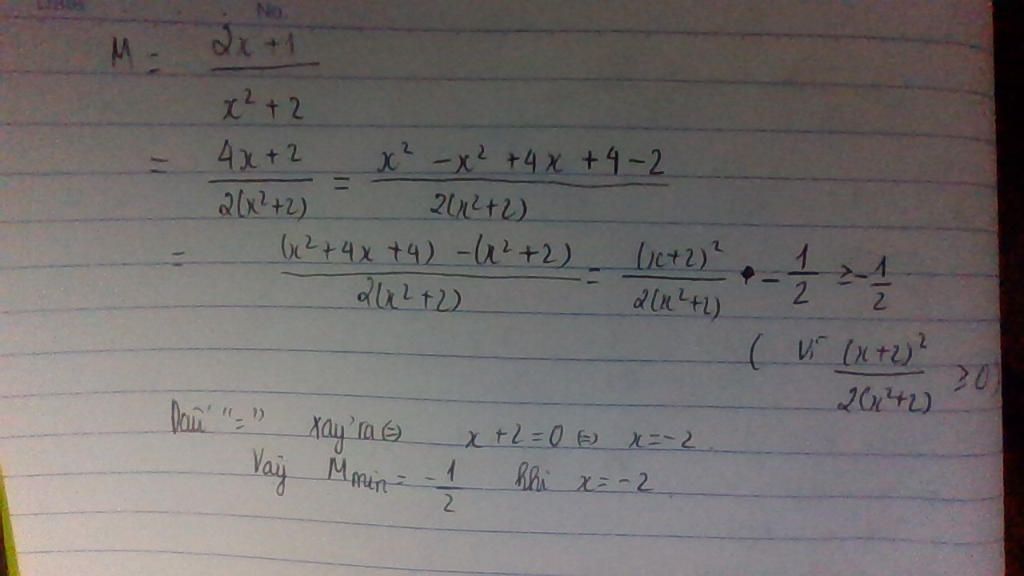 No.
M = \frac{2x+1}{x^2+2}
= \frac{4x+2}{2(x^2+2)} = \frac{x^2-x^2+4x+4-2}{2(x^2+2)}
= \frac{(x^2+4x+4)-(x^2+2)}{2(x^2+2)} = \frac{(x+2)^2}{2(x^2+2)} - \frac{1}{2} ≥ -\frac{1}{2}
( Vì \frac{(x+2)^2}{2(x^2+2)} ≥ 0)
Dấu "=" xảy ra ⇔ x+2=0 ⇔ x=-2
Vậy M_{min} = -\frac{1}{2} khi x=-2